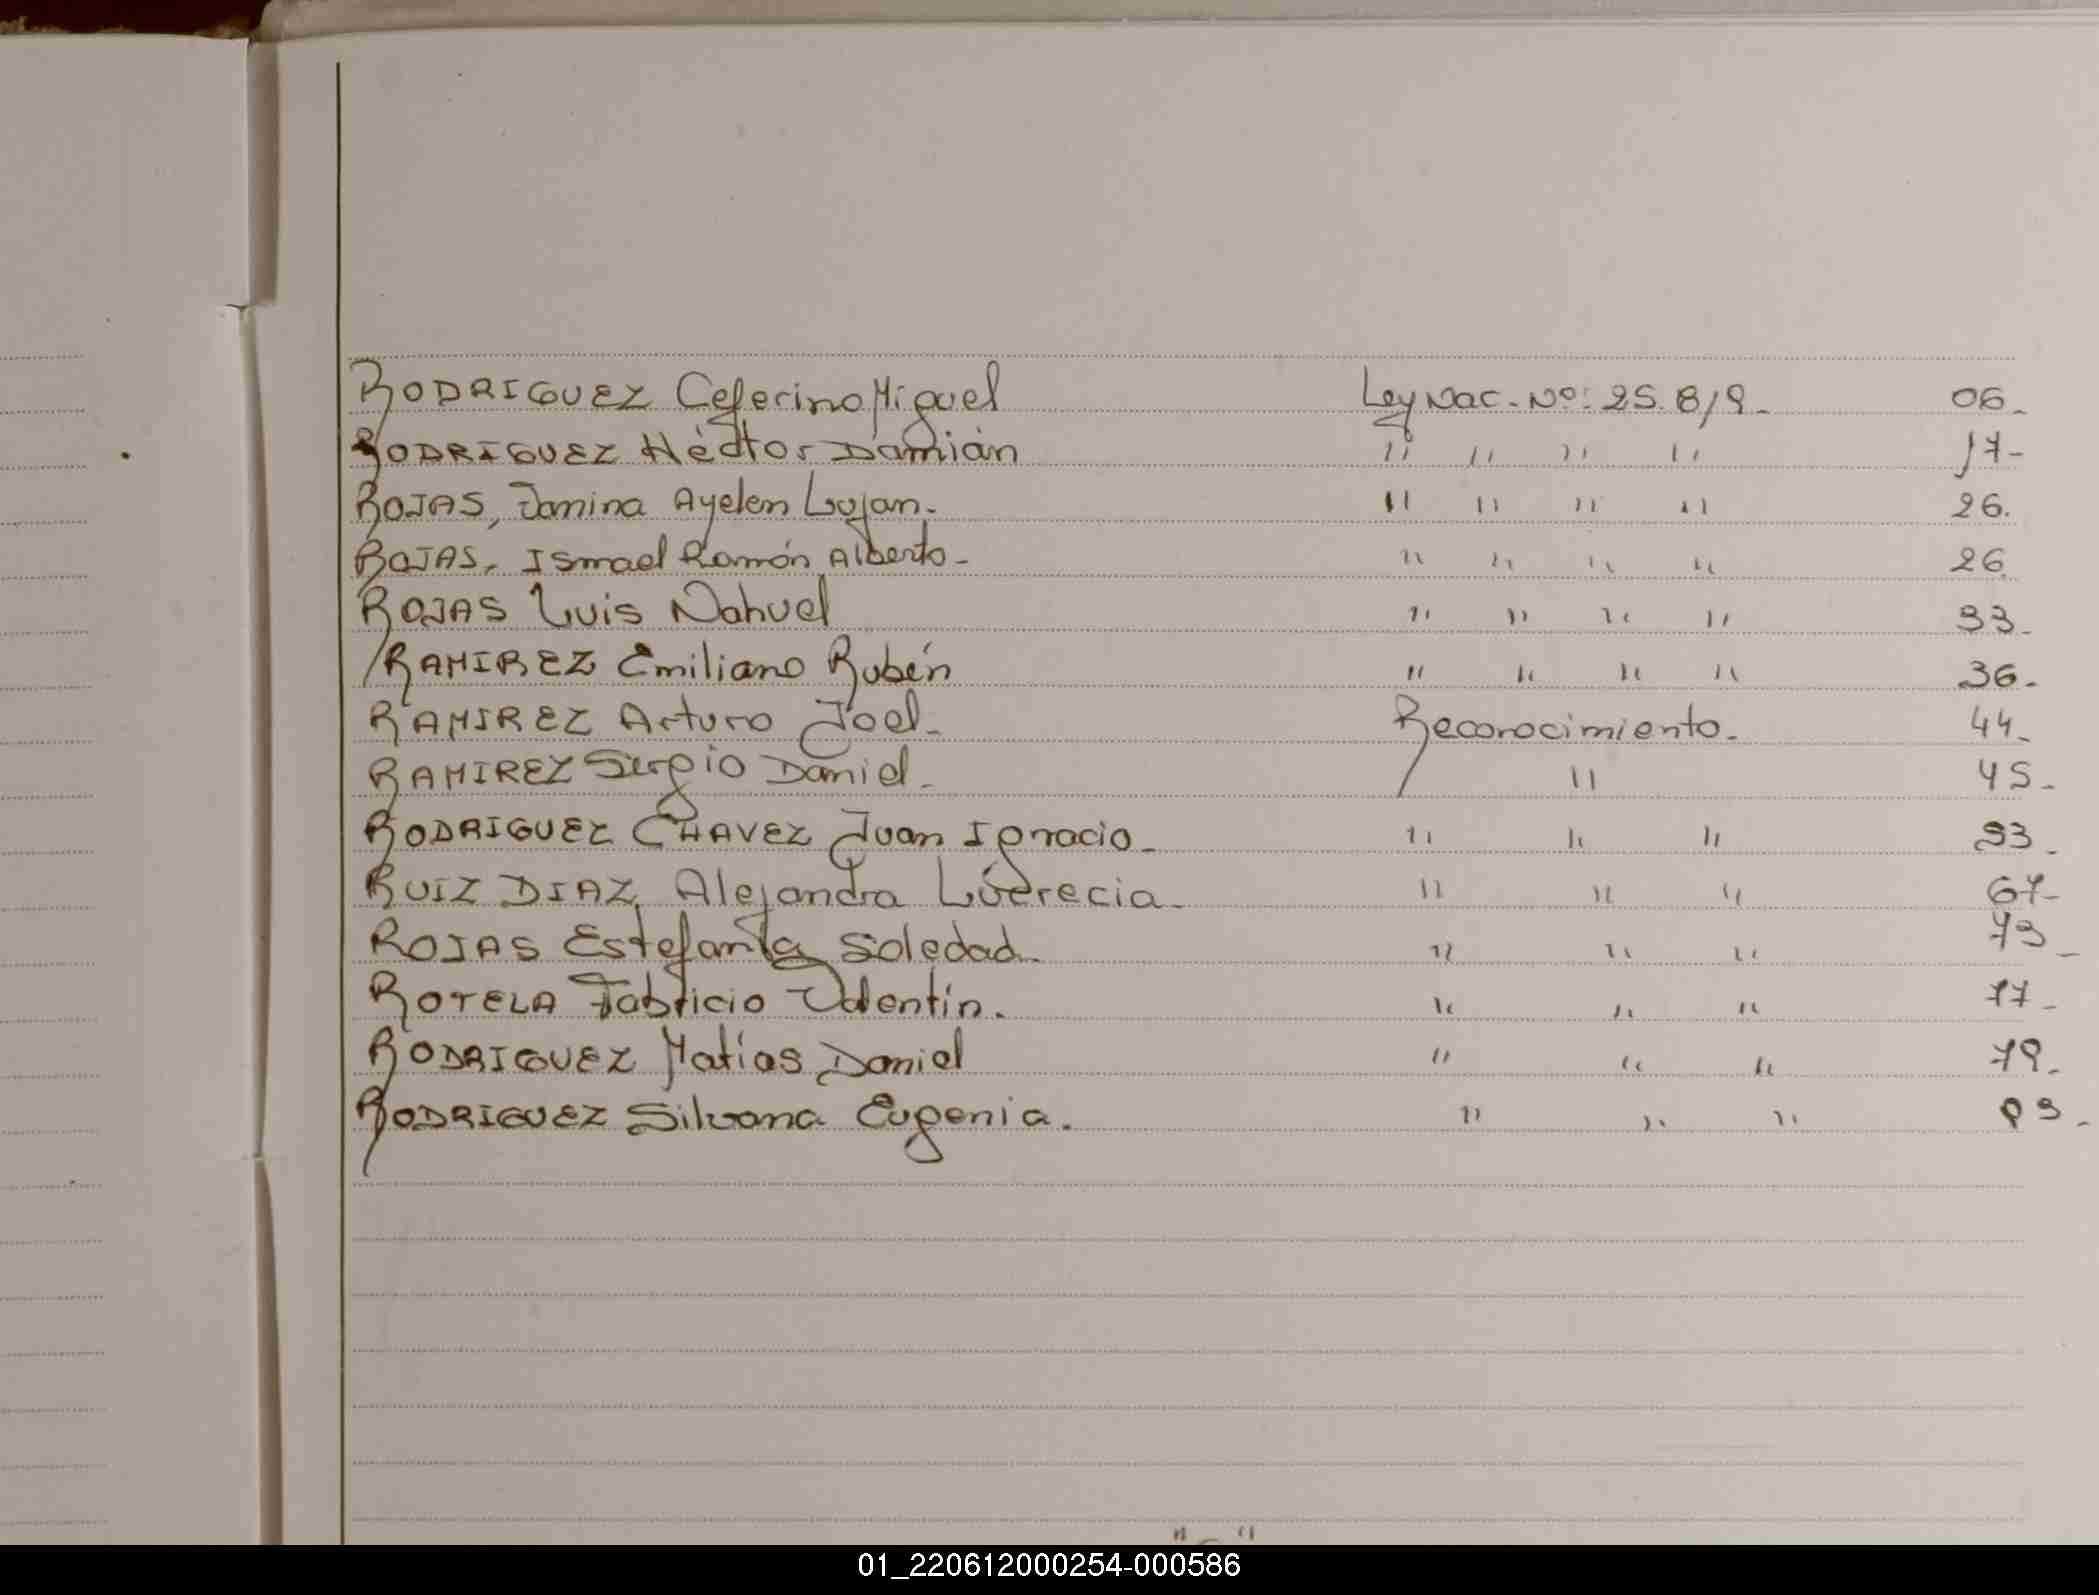 RODRIGUEZ Ceferino Miguel Ley Nac. Nº: 25.819_ 06_
RODRIGUEZ Héctor Damián " " " " 17_
ROJAS, Janina Ayelen Lujan. " " " " 26.
ROJAS, Ismael Ramón Alberto_ " " " " 26
ROJAS Luis Nahuel " " " " 33_
RAMIREZ Emiliano Rubén " " " " 36_
RAMIREZ Arturo Joel_ Reconocimiento_ 44_
RAMIREZ Sergio Daniel_ " 45_
RODRIGUEZ CHAVEZ Juan Ignacio_ " " " 53_
RUIZ DIAZ Alejandra_ " " " 67_
ROJAS Estefanía Soledad_ " " " 73_
ROTELA Fabricio Valentín. " " " 77_
RODRIGUEZ Matías Daniel " " " 79_
RODRIGUEZ Silvana Eugenia. " " "
01_220612000254-000586